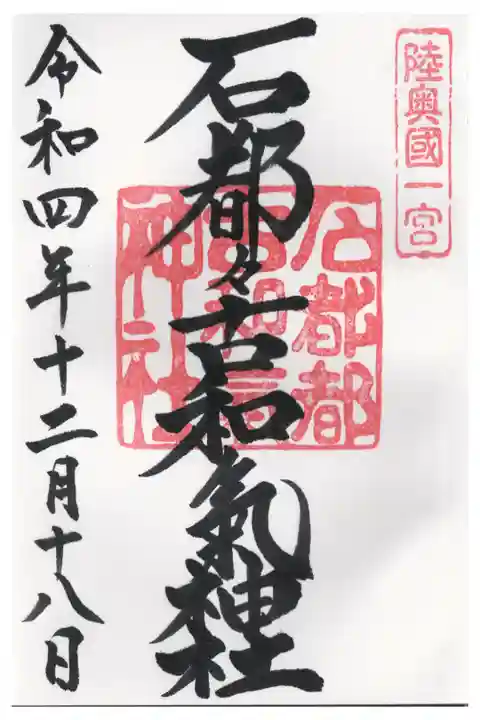 陸奥國一宮
石都々古和氣神社
石都都
古和
神社
令和四年十二月十八日